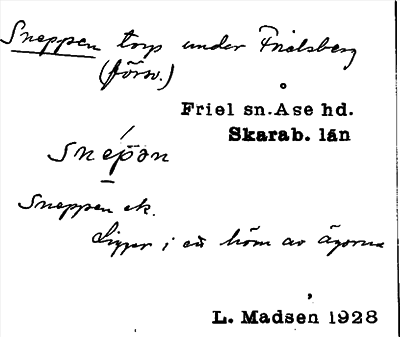 Sneppen torp under Frielsberg
(försv.)
Friel sn. Åse hd.
Skarab. län
Snépan
Sneppen ek.
Ligger i ett hörn av ägorna
L. Madsen 1928